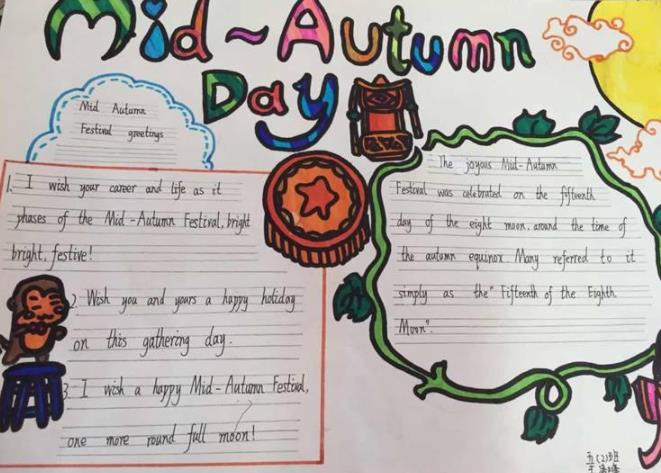 Mid~Autumn
Day
Mid Autumn
Festival greetings
1. I wish your career and life as it
phases of the Mid-Autumn Festival, bright
bright, festive!
2. Wish you and yours a happy holiday
on this gathering day.
3. I wish a happy Mid-Autumn Festival,
one more round full moon!
The joyous Mid-Autumn
Festival was celebrated on the fifteenth
day of the eight moon, around the time of
the autumn equinox. Many referred to it
simply as the "Fifteenth of the Eighth
Moon".
五(2)班